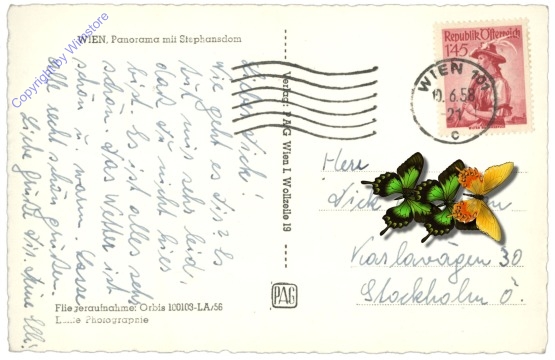 WIEN, Panorama mit Stephansdom
Lieber Dick!
Wie geht es Dir? Es
tut mir sehr leid,
daß Du nicht hier
bist. Es ist alles sehr
schön. Das Wetter ist
schön u. warm. Lasse
alle recht schön grüßen.
Liebe Grüße Dir. Deine Elli.
Fliegeraufnahme: Orbis 100103-LA/56
Photographie
Verlag: PAG Wien I, Wollzeile 19
PAG
Republik Österreich
1'45
WIEN 101
10.6.58
21
c
Herr
Dick
Karlavägen 30
Stockholm Ö.
Copyright by Wienstore